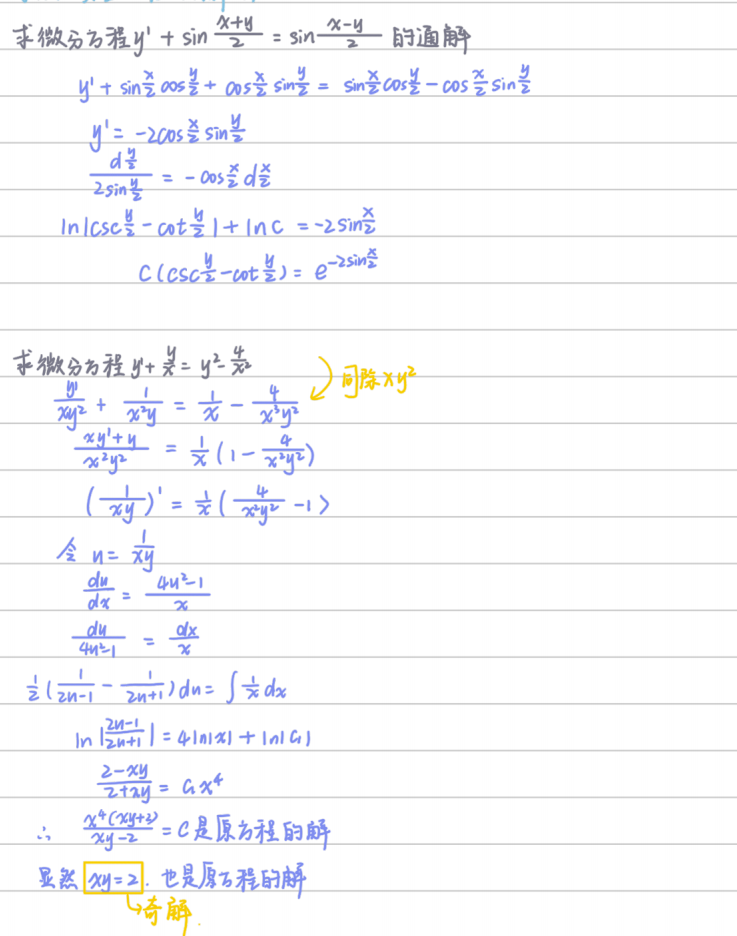 求微分方程 y' + sin (x+y)/2 = sin (x-y)/2 的通解
y' + sin x/2 cos y/2 + cos x/2 sin y/2 = sin x/2 cos y/2 - cos x/2 sin y/2
y' = -2cos x/2 sin y/2
(d y/2)/(2sin y/2) = -cos x/2 d x/2
ln|csc y/2 - cot y/2| + ln C = -2sin x/2
C(csc y/2 - cot y/2) = e^(-2sin x/2)
求微分方程 y' + y/x = y² - 4/x²
y'/(xy²) + 1/(x²y) = 1/x - 4/(x³y²)
同除xy²
(xy'+y)/(x²y²) = 1/x (1 - 4/(x²y²))
(1/(xy))' = 1/x (4/(x²y²) - 1)
令 u = 1/(xy)
du/dx = (4u²-1)/x
du/(4u²-1) = dx/x
1/2 (1/(2u-1) - 1/(2u+1)) du = ∫ 1/x dx
ln |(2u-1)/(2u+1)| = 4ln|x| + ln|C₁|
(2-xy)/(2+xy) = C₁x⁴
∴ x⁴(xy+2)/(xy-2) = C 是原方程的解
显然 xy=2. 也是原方程的解
奇解.